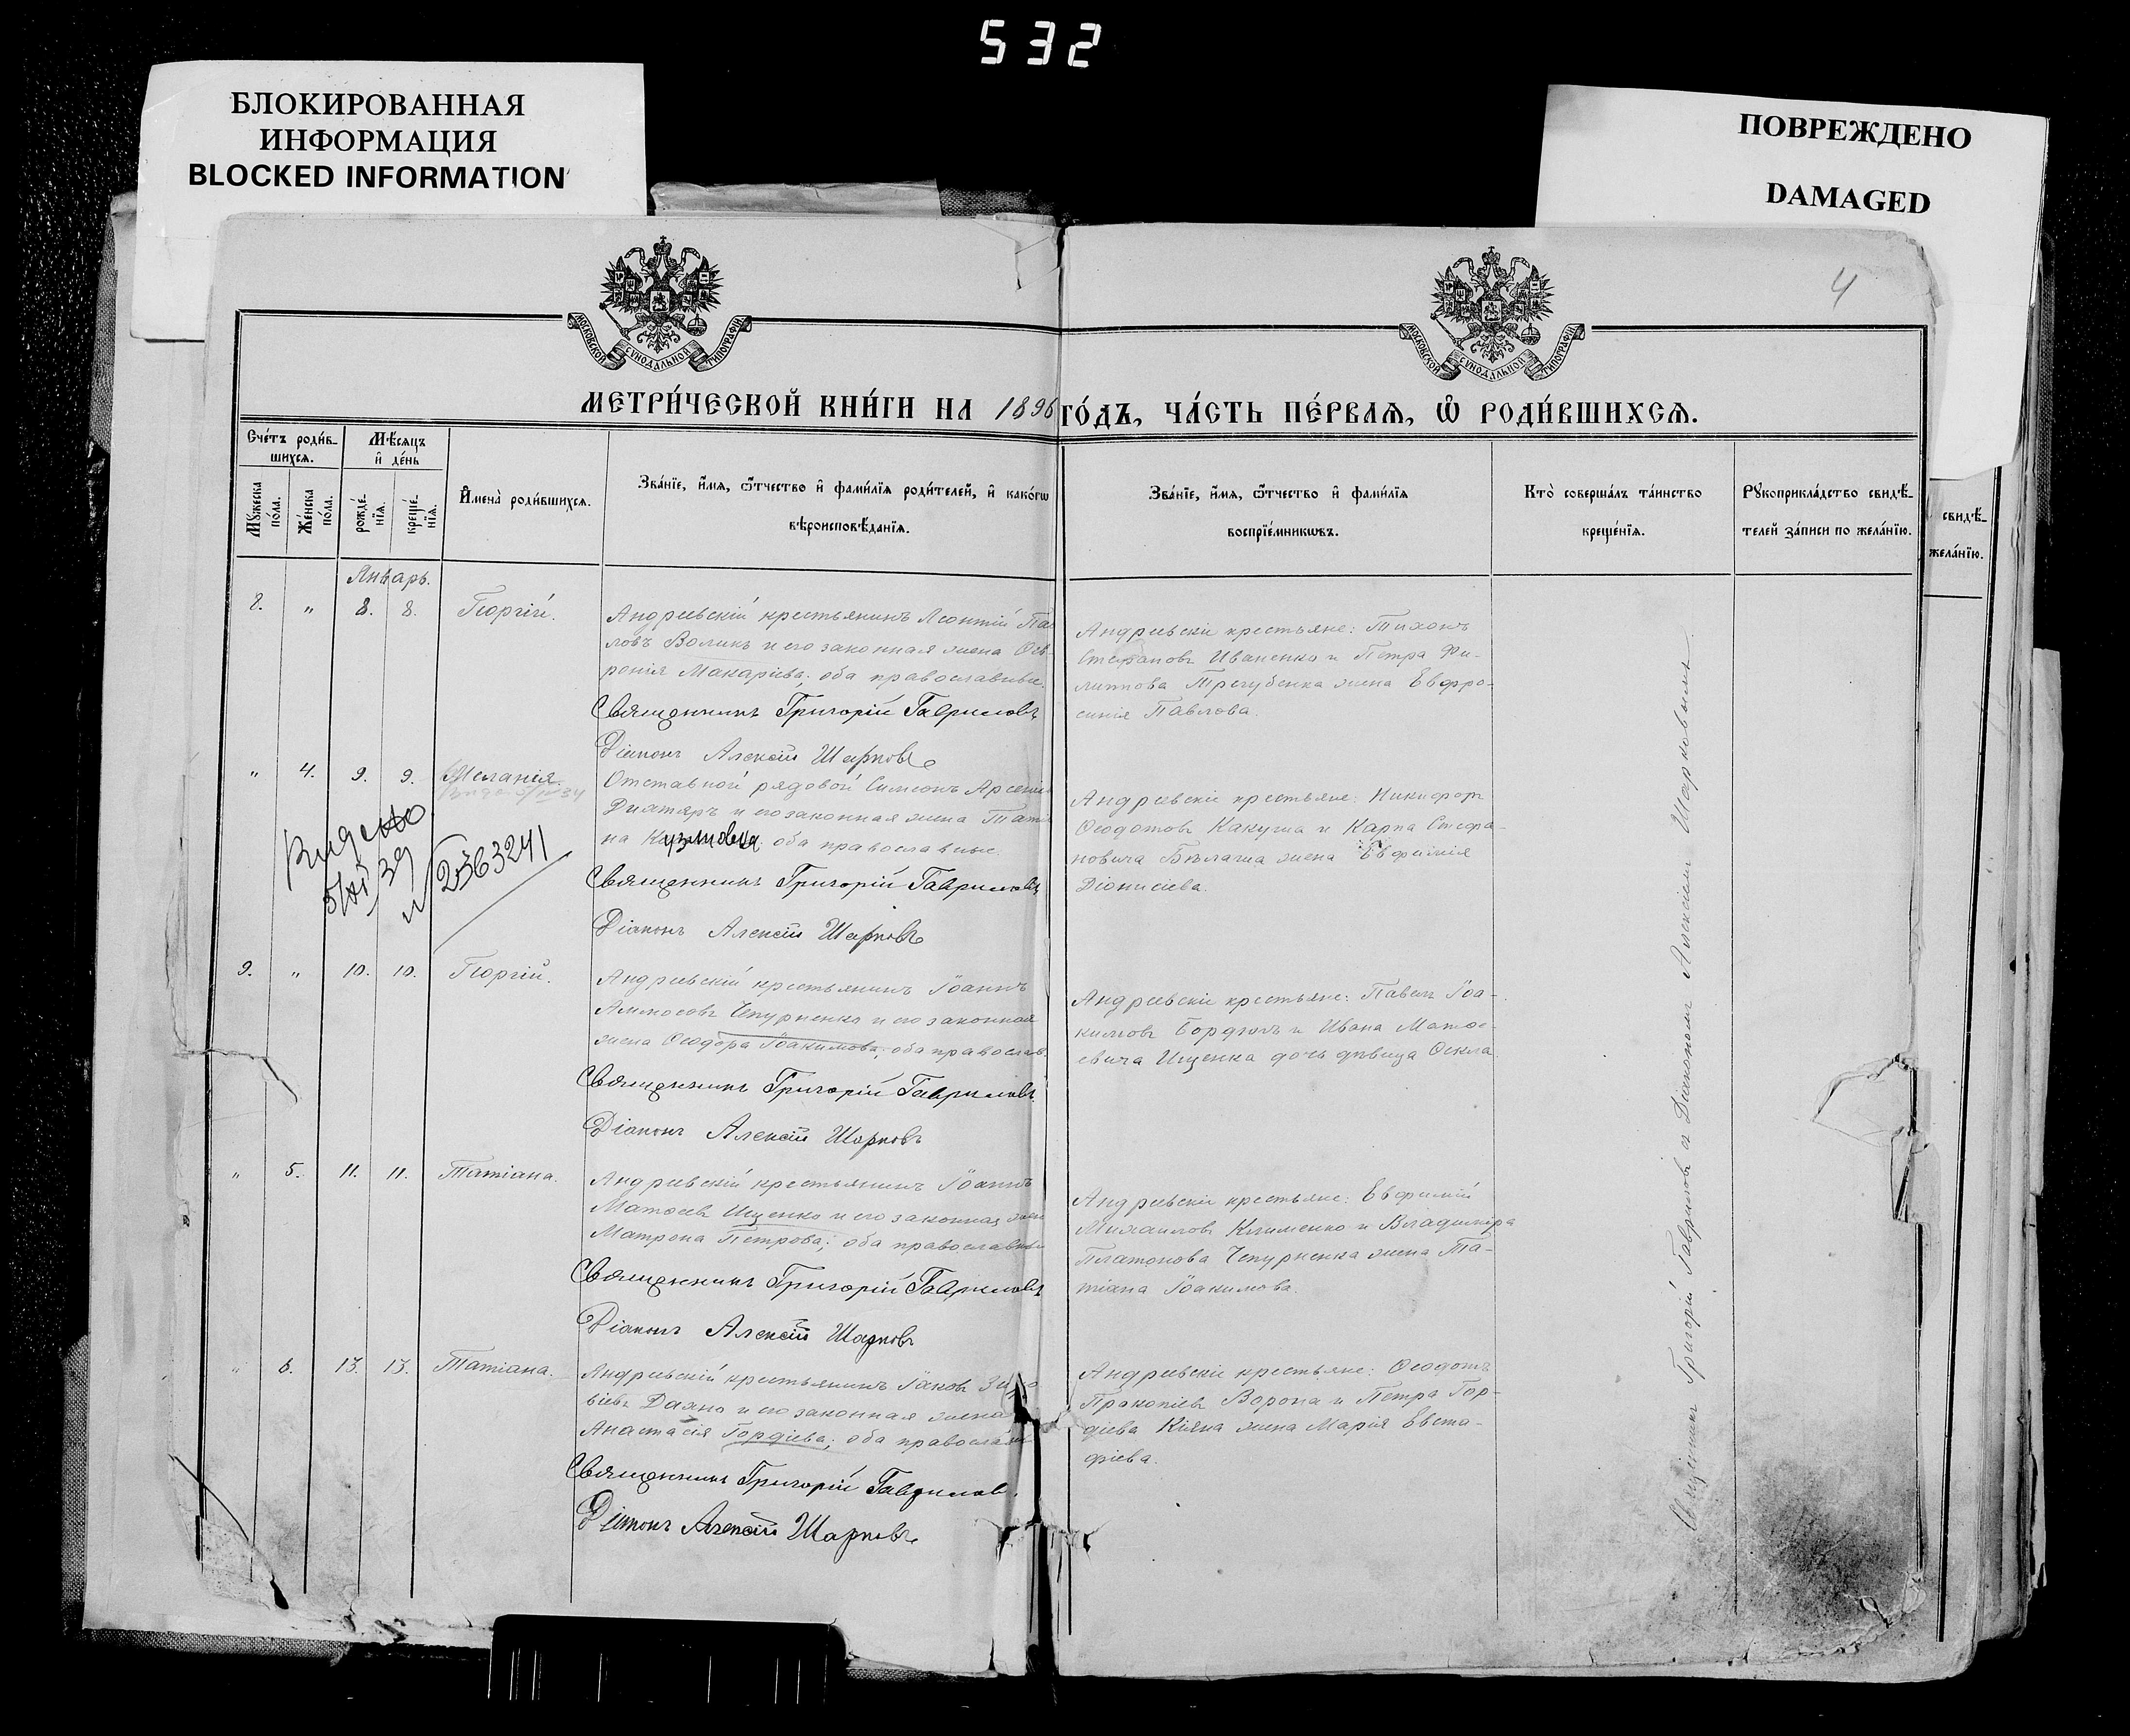 532
БЛОКИРОВАННАЯ
ИНФОРМАЦИЯ
BLOCKED INFORMATION
ПОВРЕЖДЕНО
DAMAGED
4
МОСКОВСКОЙ СѴНОДАЛЬНОЙ ТИПОГРАФІИ
МОСКОВСКОЙ СѴНОДАЛЬНОЙ ТИПОГРАФІИ
МЕТРИ́ЧЕСКОЙ КНИ́ГИ НА 1896 ГО́ДЪ, ЧА́СТЬ ПЕ́РВАѦ, Ѡ РОДИ́ВШИХСѦ.
Сче́тъ роди́в-
шихсѧ.
Мѣ́сѧцъ
и де́нь
Мꙋ́жеска
по́ла.
Же́нска
по́ла.
рожде́-
нїѧ.
креще́-
нїѧ.
Имена̀ роди́вшихсѧ.
Зва́нїе, и́мѧ, ѻ́тчество и фами́лїѧ роди́телей, и како́гѡ
вѣроисповѣ́данїѧ.
Зва́нїе, и́мѧ, ѻ́тчество и фами́лїѧ
воспрїе́мникѡвъ.
Кто̀ соверша́лъ та́инство
креще́нїѧ.
Рꙋкоприкла́дство свидѣ́-
телей за́писи по жела́нїю.
свидѣ́-
жела́нїю.
Январь.
8. " 8. 8. Георгій.
Андреевскій крестьянинъ Леонтій Пав
ловъ Воликъ и его законная жена Фев-
ронія Макаріева; оба православные.
Священникъ Григорій Гавриловъ
Діаконъ Алексій Шарковъ
Андреевскіе крестьяне: Тихонъ
Стефановъ Иваненко и Петра Фи-
липпова Трегубенка жена Евфро-
синія Павлова.
" 4. 9. 9. Меланія.
Отставной рядовой Симеонъ Арсеніе
его законная жена Татія
на Кузмовна оба православные.
Священникъ Григорій Гавриловъ
Діаконъ Алексій Шарковъ
Андреевскіе крестьяне: Никифоръ
Ѳеодотовъ Какуша и Карпа Стефа-
новича жена Евфимія
Діонисіева.
Видано
5/XI 39
2363241
9. " 10. 10. Георгій.
Андреевскій крестьянинъ Іоаннъ
Аммосовъ Чепурненко и его законная
жена Ѳеодора Іоакимова; оба православ.
Священникъ Григорій Гавриловъ
Діаконъ Алексій Шарковъ
Андреевскіе крестьяне: Павелъ Іоа-
кимовъ и Ивана Матѳе-
евича Ищенка дочь дѣвица Ѳекла.
" 5. 11. 11. Татіана.
Андреевскій крестьянинъ Іоаннъ
Матѳеевъ Ищенко и его законная жена
Матрона Петрова; оба православные
Священникъ Григорій Гавриловъ
Діаконъ Алексій Шарковъ
Андреевскіе крестьяне: Евфимій
Михаиловъ Клименко и Владиміра
Платонова Чепурненка жена Та-
тіана Іоакимова.
" 6. 13. 13. Татіана.
Андреевскій крестьянинъ Іаковъ
его законная жена
Анастасія Гордіева; оба православн
Священникъ Григорій Гаврилов
Діаконъ Алексій Шарковъ
Андреевскіе крестьяне: Ѳеодотъ
Прокопіевъ Ворона и Петра Гор-
діева Кіяна жена Марія Евста-
фіева.
Священникъ Григорій Гавриловъ съ Діакономъ Алексіемъ Шарковымъ